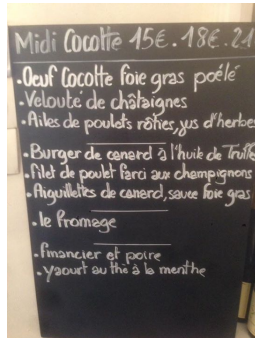 Midi Cocotte 15€.18€.21
. Oeuf Cocotte foie gras poélé
. Velouté de châtaignes
. Ailes de poulets rôties, jus d'herbes
. Burger de canard à l'huile de Truffe
. filet de poulet farci aux champignons
. Aiguillettes de canard, sauce foie gras
. le fromage
. financier et poire
. yaourt au thé à la menthe